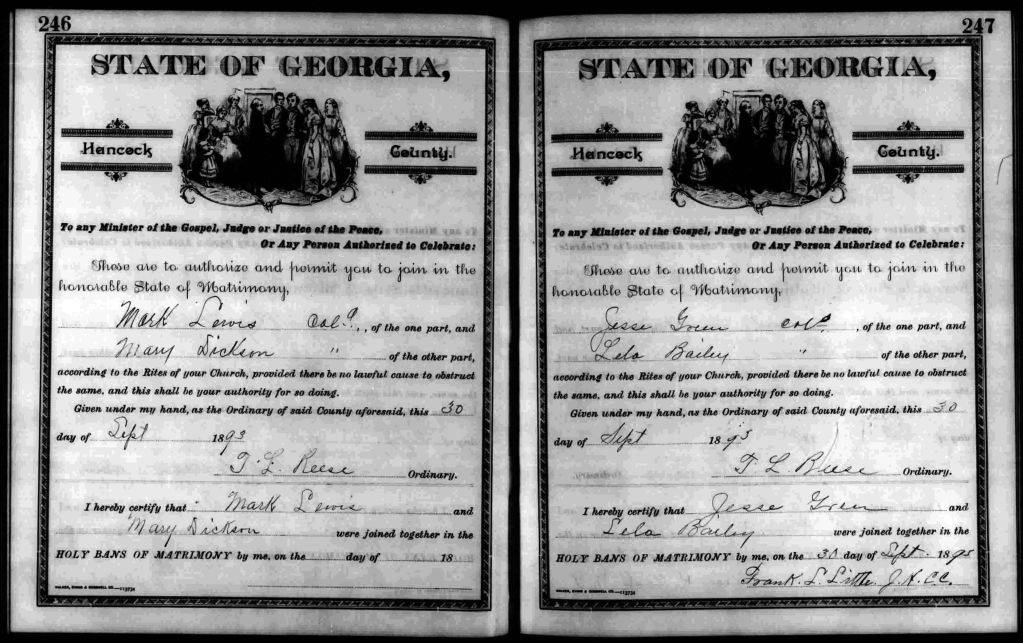 246
STATE OF GEORGIA,
Hancock County.
To any Minister of the Gospel, Judge or Justice of the Peace,
Or Any Person Authorized to Celebrate:
These are to authorize and permit you to join in the
honorable State of Matrimony,
Mark Lewis Cold., of the one part, and
Mary Dickson " of the other part,
according to the Rites of your Church, provided there be no lawful cause to obstruct
the same, and this shall be your authority for so doing.
Given under my hand, as the Ordinary of said County aforesaid, this 30
day of Sept 1893
T. L. Reese Ordinary.
I hereby certify that Mark Lewis and
Mary Dickson were joined together in the
HOLY BANS OF MATRIMONY by me, on the day of 18
247
STATE OF GEORGIA,
Hancock County.
To any Minister of the Gospel, Judge or Justice of the Peace,
Or Any Person Authorized to Celebrate:
These are to authorize and permit you to join in the
honorable State of Matrimony,
Jesse Green cold, of the one part, and
Lela Bailey " of the other part,
according to the Rites of your Church, provided there be no lawful cause to obstruct
the same, and this shall be your authority for so doing.
Given under my hand, as the Ordinary of said County aforesaid, this 30
day of Sept 1893
T L Reese Ordinary.
I hereby certify that Jesse Green and
Lela Bailey were joined together in the
HOLY BANS OF MATRIMONY by me, on the 30 day of Sept. 189
Frank. L. Little.